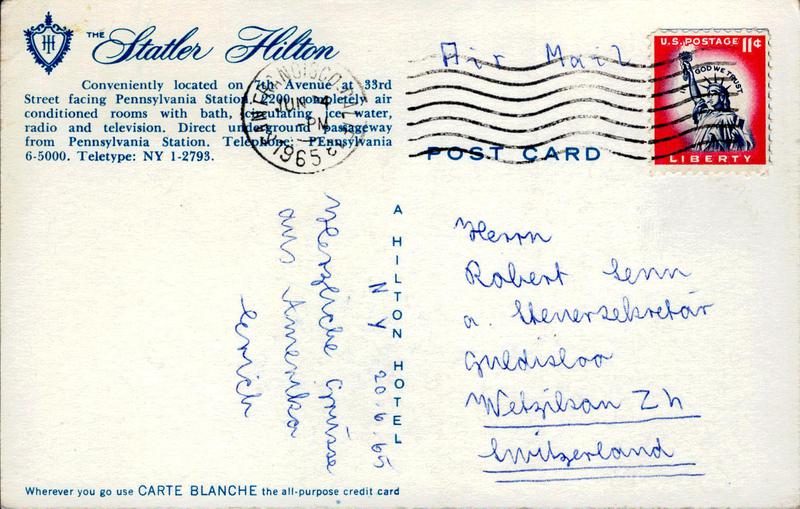 THE Statler Hilton
Conveniently located on 7th Avenue at 33rd
Street facing Pennsylvania Station. 2200 completely air
conditioned rooms with bath, circulating ice water,
radio and television. Direct underground passageway
from Pennsylvania Station. Telephone: PEnnsylvania
6-5000. Teletype: NY 1-2793.
SAN FRANCISCO, CALIF.
JUN
PM
1965
Air Mail
U.S. POSTAGE 11¢
IN GOD WE TRUST
LIBERTY
POST CARD
A HILTON HOTEL
N Y 20.6.65
Herzliche Grüsse
aus Amerika
Erich
Herrn
Robert Senn
a. Steuersekretär
Guldisloo
Wetzikon Zh
Switzerland
Wherever you go use CARTE BLANCHE the all-purpose credit card